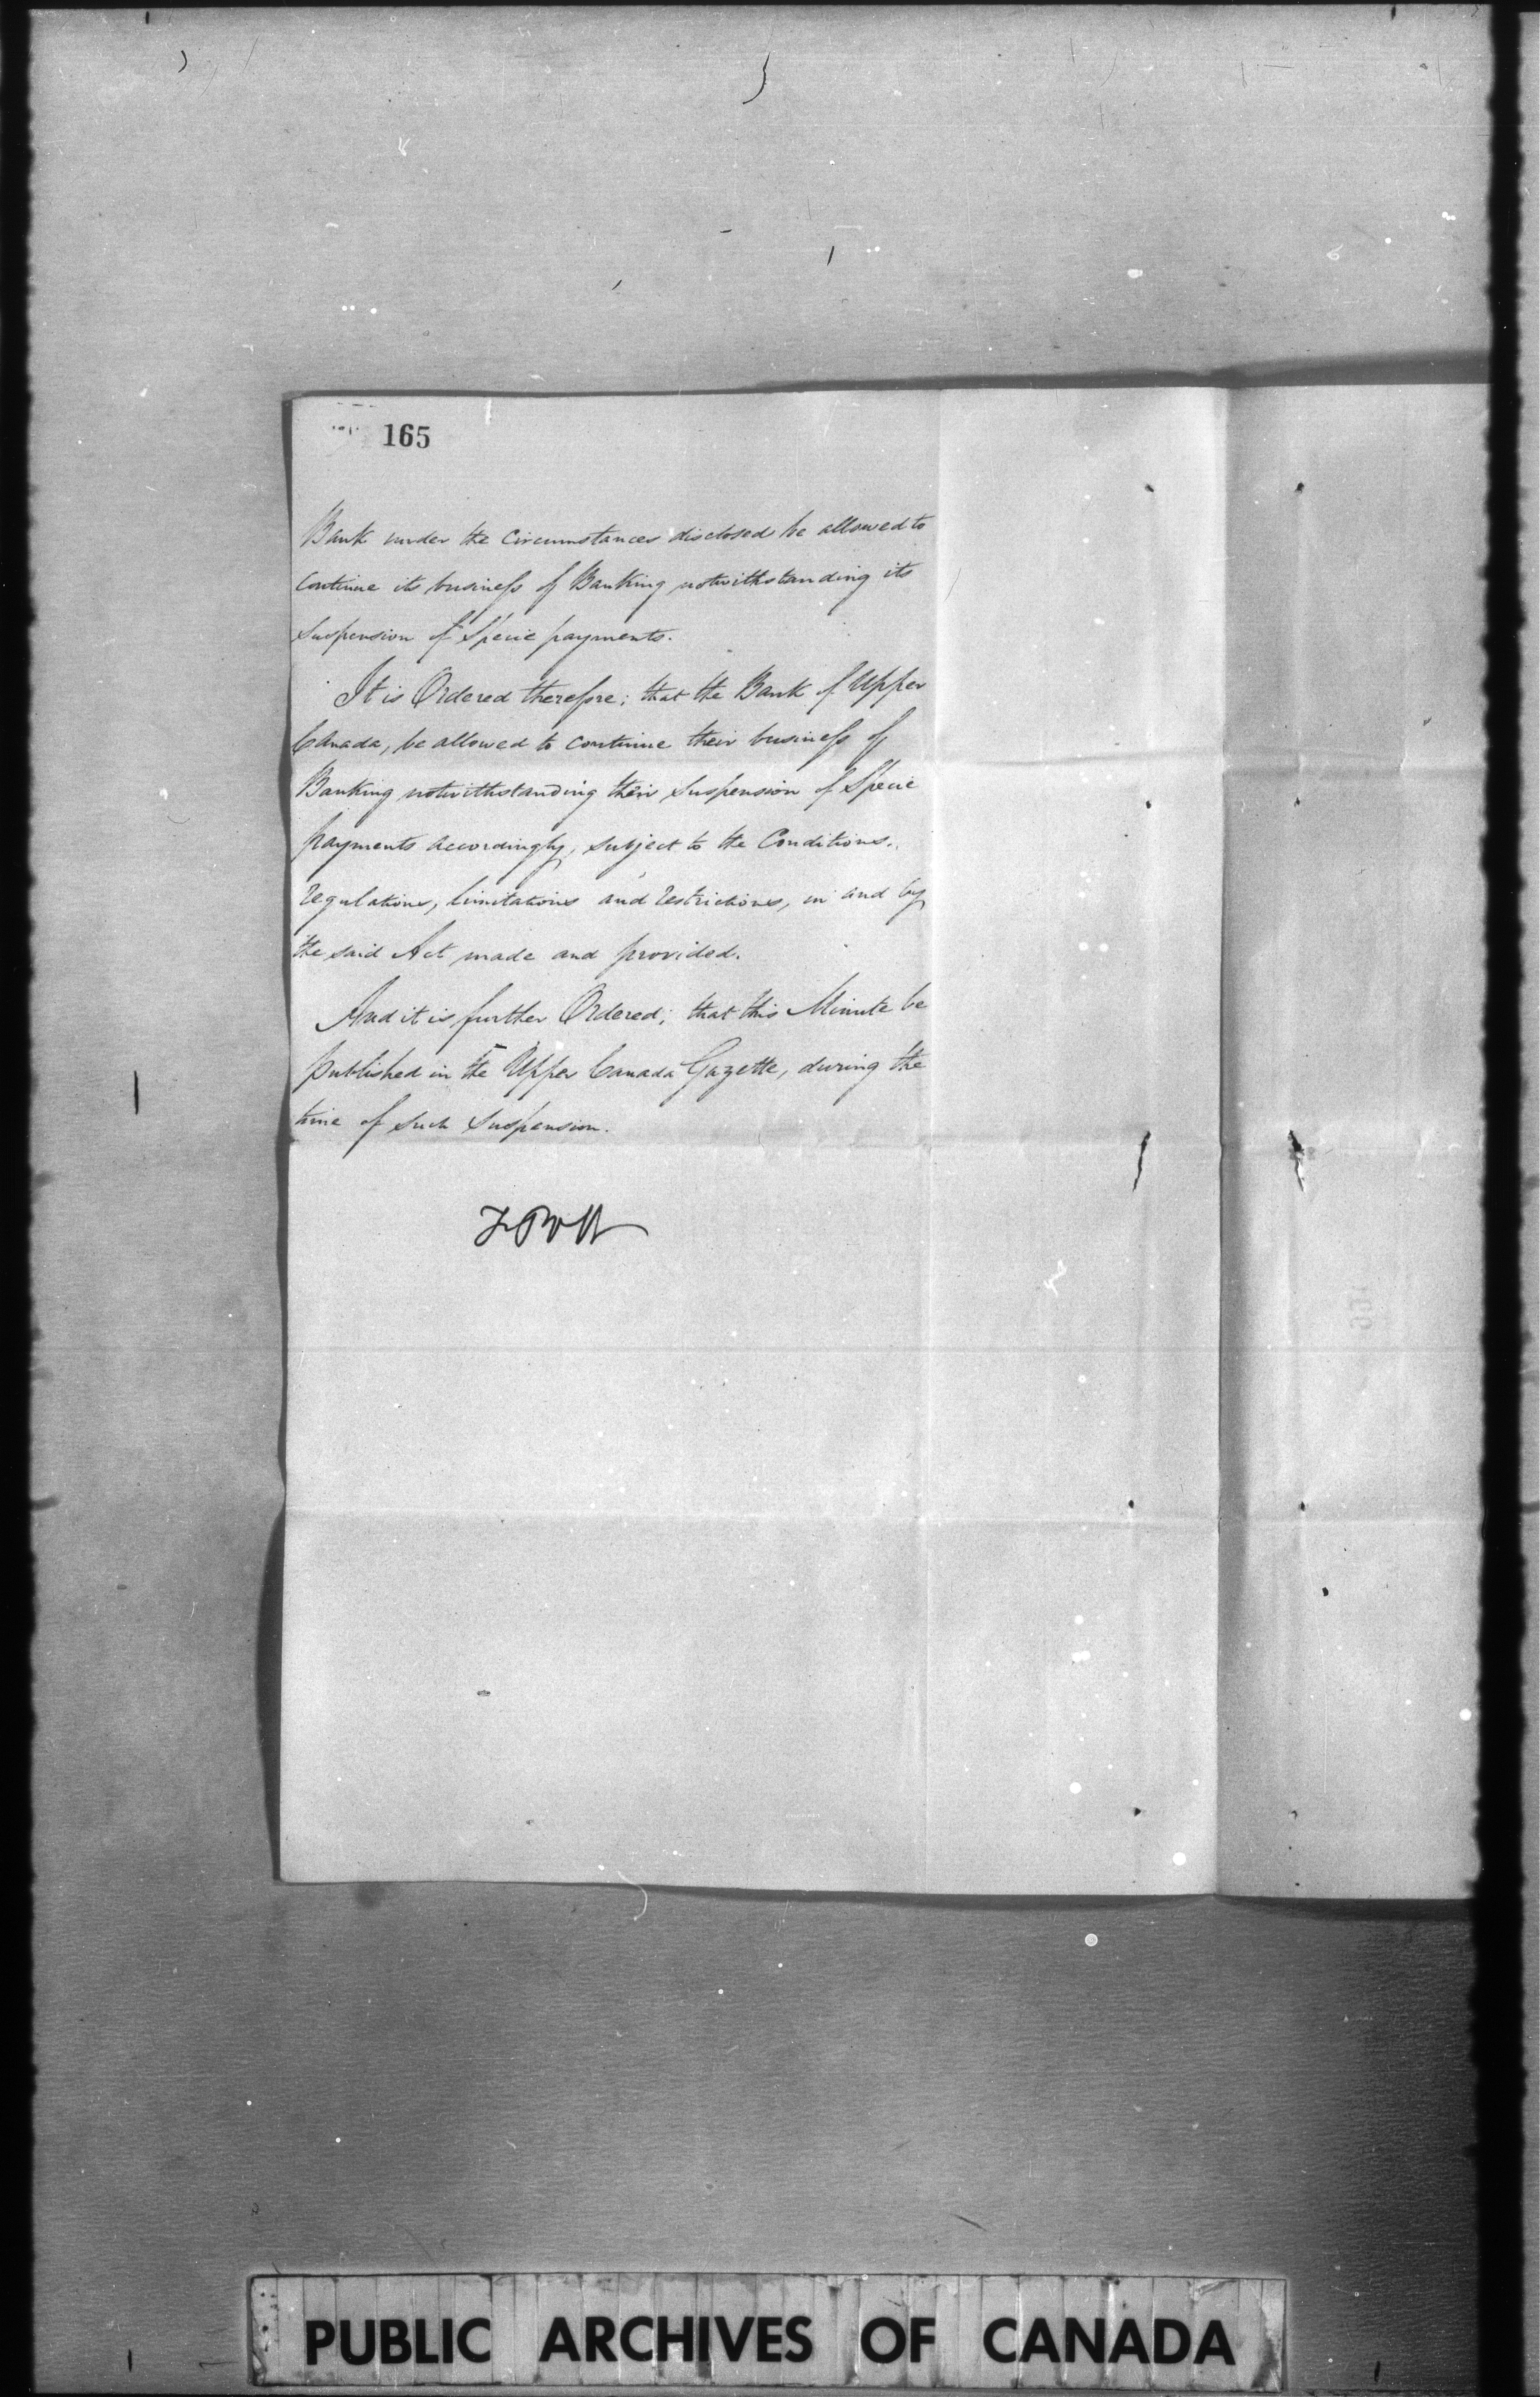 165
Bank under the Circumstances disclosed be allowed to
Continue its business of Banking notwithstanding its
Suspension of Specie payments.
It is Ordered therefore; that the Bank of Upper
Canada, be allowed to continue their business of
Banking notwithstanding their Suspension of Specie
payments accordingly, subject to the Conditions,
regulations, limitations and restrictions, in and by
the said Act made and provided.
And it is further Ordered; that this Minute be
published in the Upper Canada Gazette, during the
time of such Suspension.
PUBLIC ARCHIVES OF CANADA